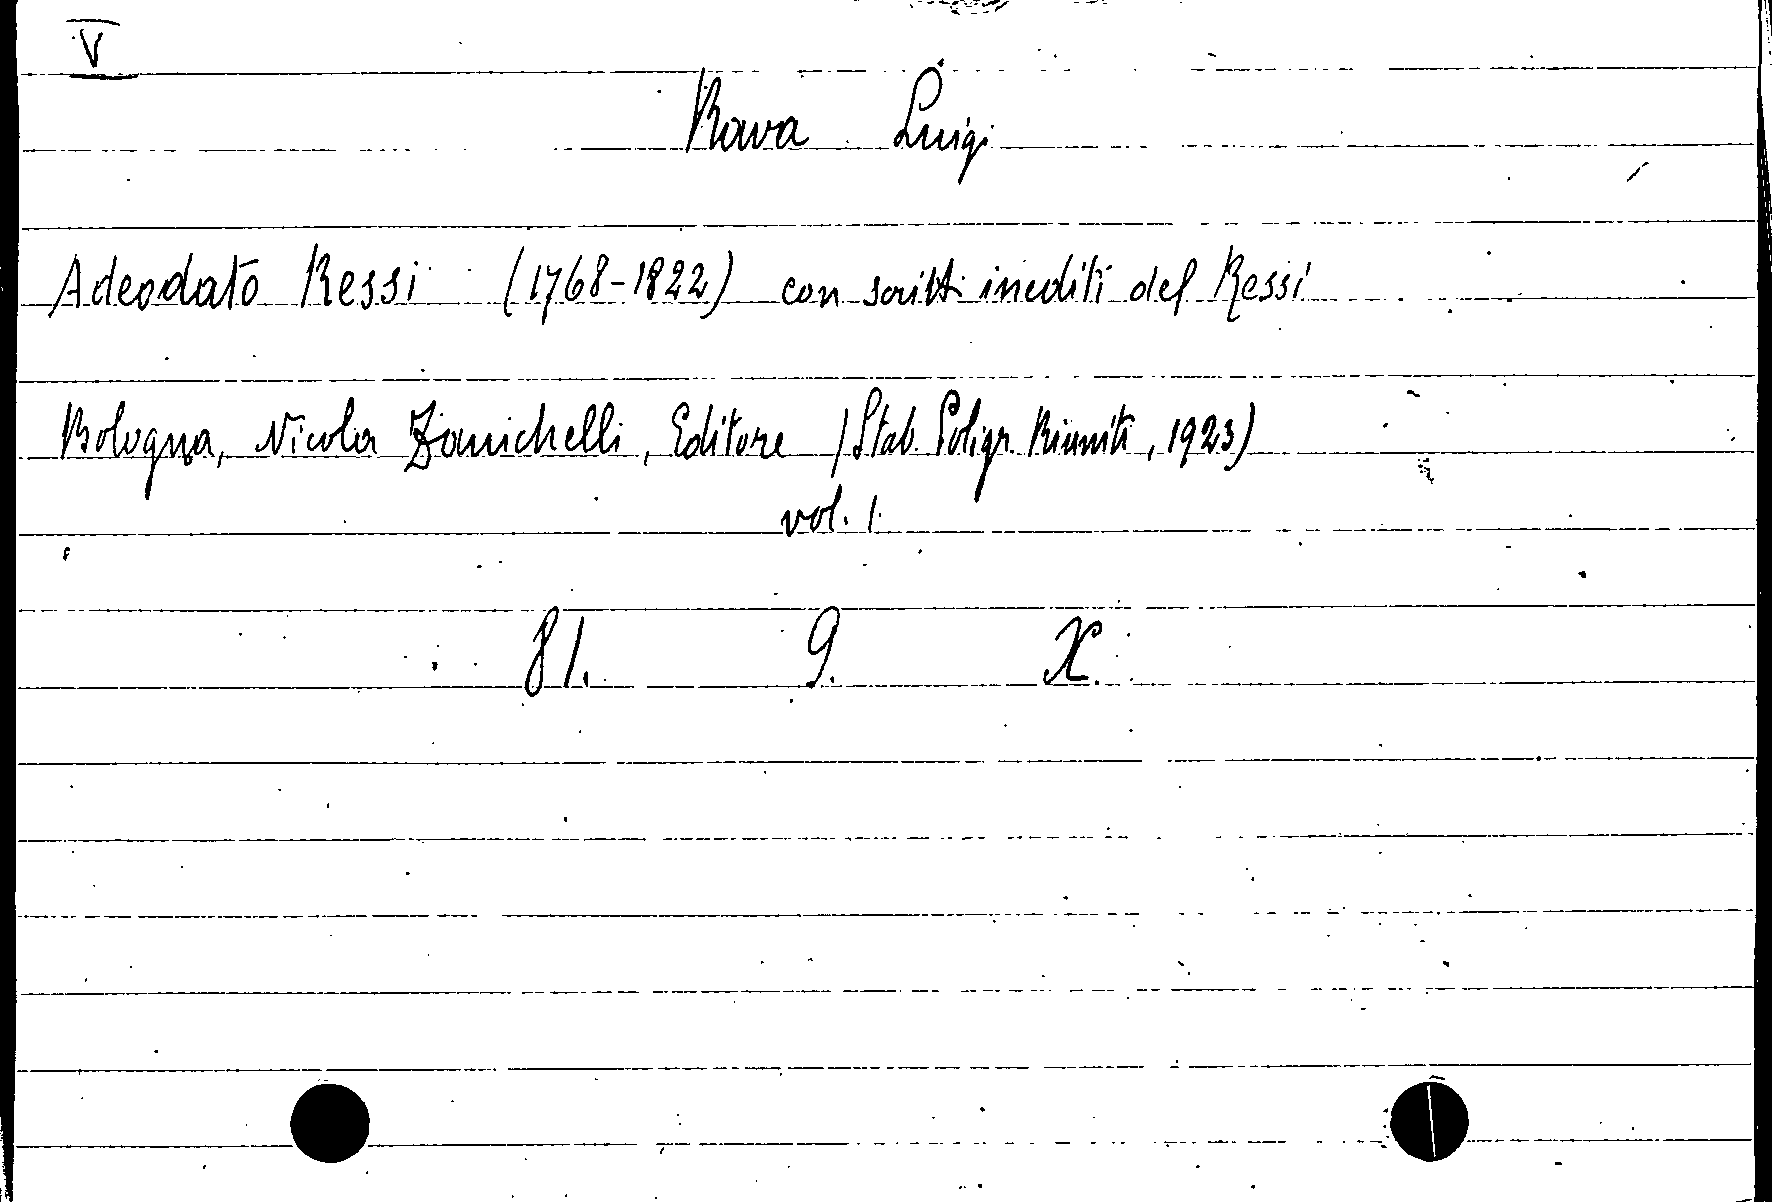 V
Rava Luigi
Adeodato Ressi (1768-1822) con scritti inediti del Ressi
Bologna, Nicola Zanichelli, Editore (Stab. Poligr. Riuniti, 1923)
vol. 1.
81. 9. X.